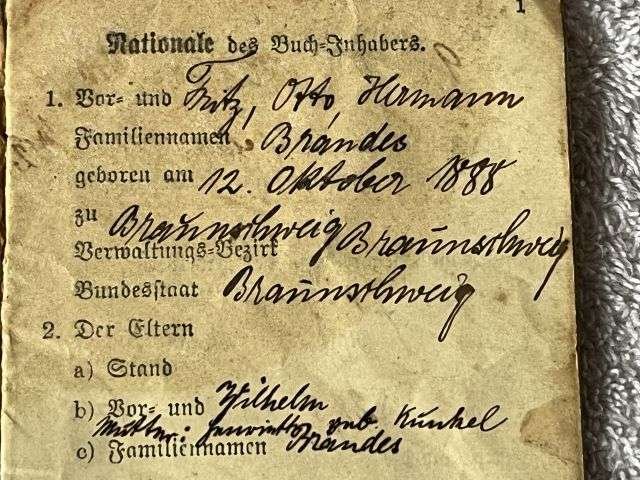 1
Nationale des Buch-Inhabers.
1. Vor- und Fritz, Otto, Hermann
Familiennamen Brandes
geboren am 12. Oktober 1888
zu Braunschweig
Verwaltungs-Bezirk Braunschweig
Bundesstaat Braunschweig
2. Der Eltern
a) Stand
b) Vor- und Wilhelm
Mutter: Henriette geb. Kunkel
c) Familiennamen Brandes